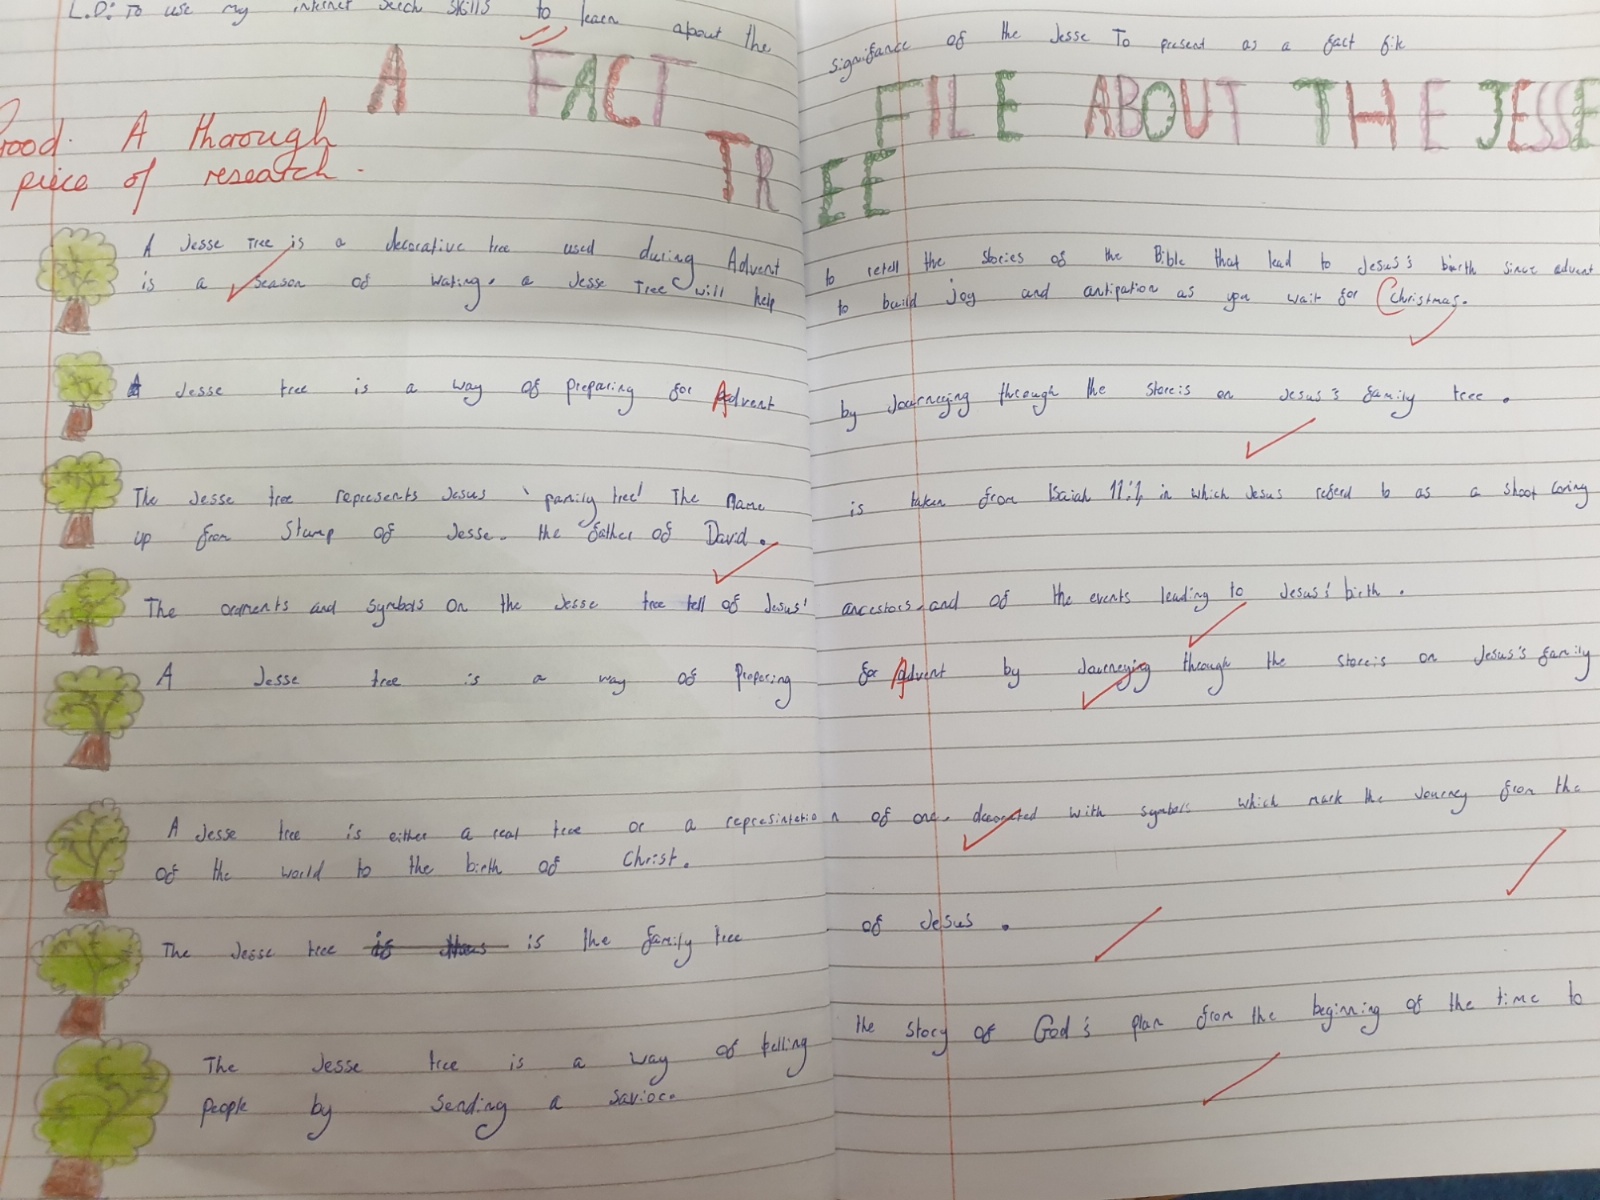 L.O: To use my internet serch skills to learn about the significance of the Jesse To present as a fact file
A FACT FILE ABOUT THE JESSE
TREE
Good. A thorough
piece of research.
A Jesse Tree is a decorative tree used during Advent to retell the stories of the Bible that lead to Jesus's birth since advent
is a season of wating. a Jesse Tree will help to build joy and antipation as you wait for Christmas.
A Jesse tree is a way of preparing for Advent by Journeying through the storeis on Jesus's family tree.
The Jesse tree represents Jesus 'family tree' The name is taken from Isaiah 11:1, in which Jesus referd to as a shoot coring
up from Stump of Jesse. the father of David.
The orements and symbols on the Jesse tree tell of Jesus' ancestors and of the events leading to Jesus's birth.
A Jesse tree is a way of preparing for Advent by Journeying through the storeis on Jesus's family
A Jesse tree is either a real tree or a represintation of one. decorated with symbols which mark the Journey from the
of the world to the birth of Christ.
The Jesse tree is the family tree of Jesus.
The Jesse tree is a way of telling the story of God's plan from the beginning of the time to
people by sending a savior.